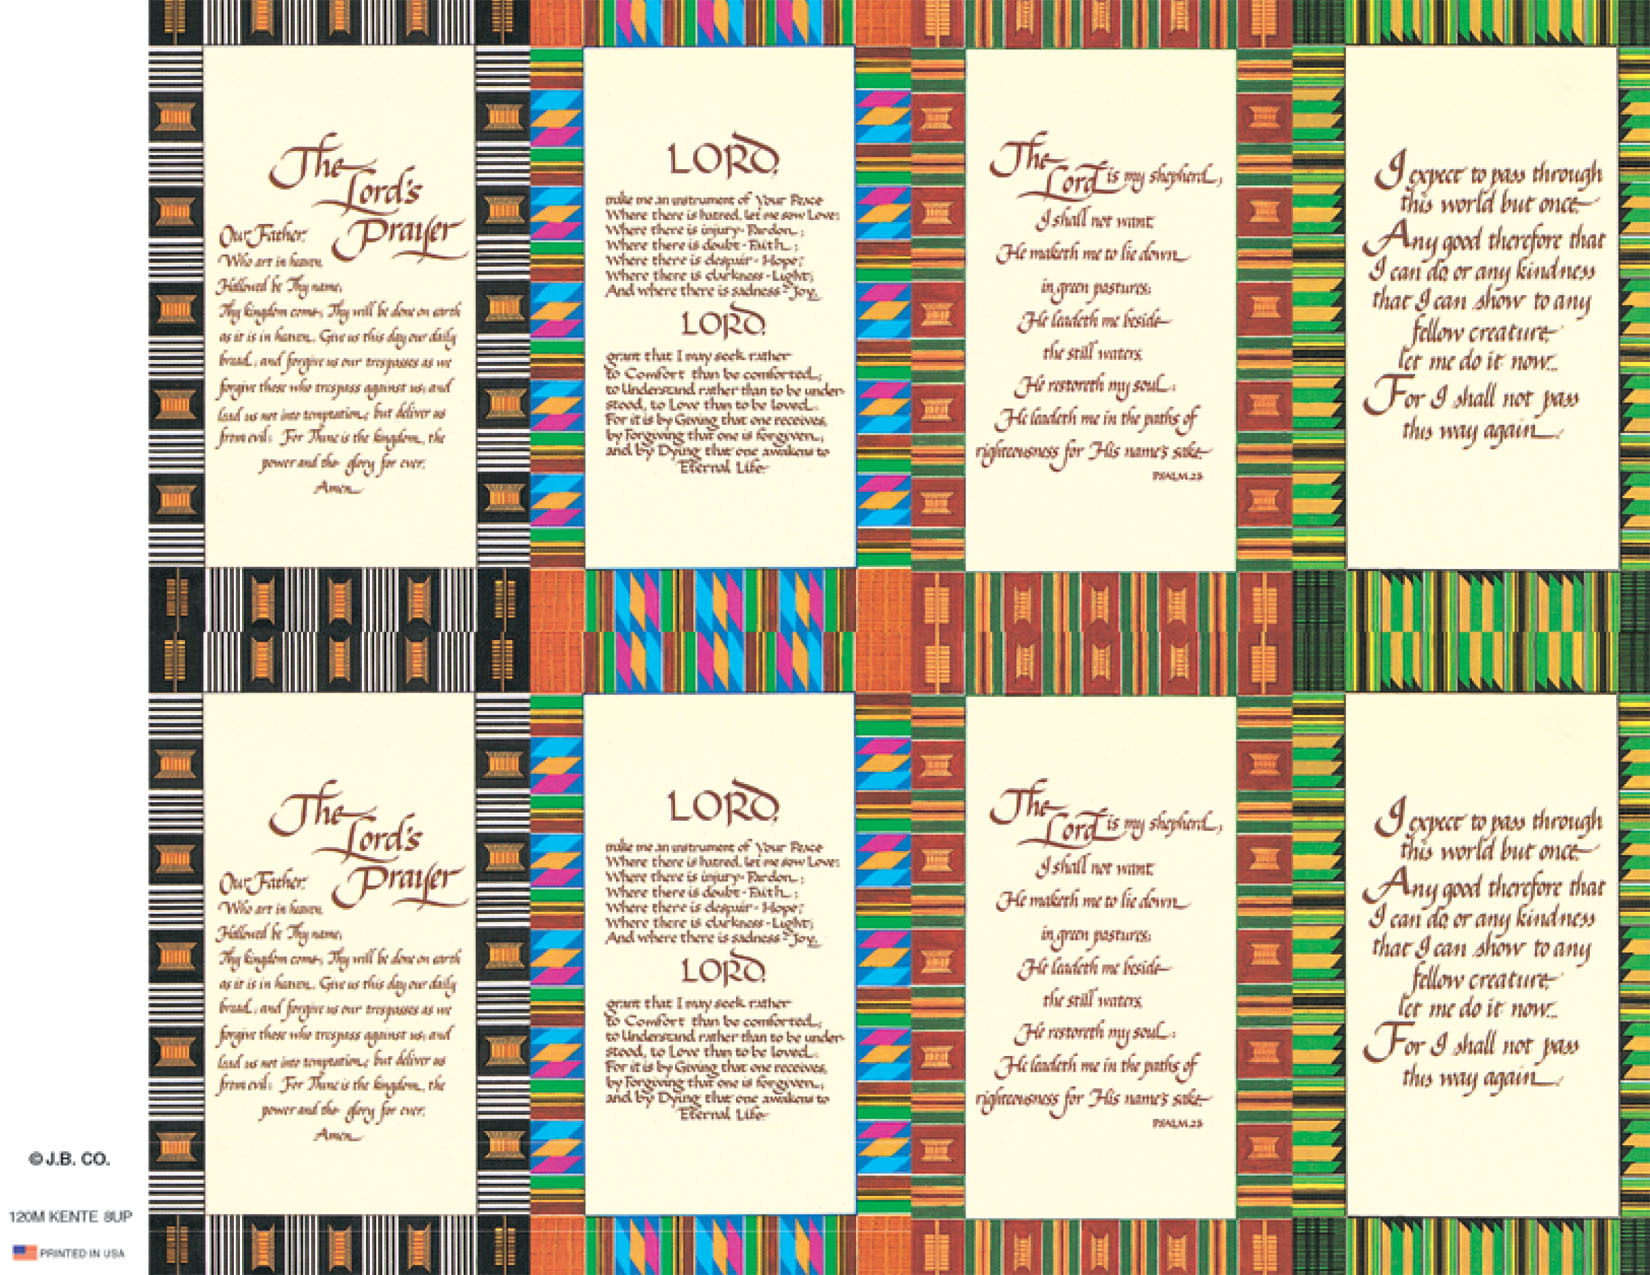 The
Lord's
Prayer
Our Father,
Who art in heaven,
Hallowed be Thy name;
Thy kingdom come; Thy will be done on earth
as it is in heaven. Give us this day our daily
bread; and forgive us our trespasses as we
forgive those who trespass against us; and
lead us not into temptation; but deliver us
from evil: For Thine is the kingdom, the
power and the glory for ever.
Amen
LORD,
make me an instrument of Your Peace
Where there is hatred, let me sow Love;
Where there is injury - Pardon;
Where there is doubt - Faith;
Where there is despair - Hope;
Where there is darkness - Light;
And where there is sadness - Joy.
LORD,
grant that I may seek rather
to Comfort than be comforted;
to Understand rather than to be under-
stood, to Love than to be loved.
For it is by Giving that one receives,
by Forgiving that one is forgiven;
and by Dying that one awakens to
Eternal Life
The
Lord is my shepherd;
I shall not want
He maketh me to lie down
in green pastures;
He leadeth me beside
the still waters.
He restoreth my soul:
He leadeth me in the paths of
righteousness for His name's sake
PSALM.23
I expect to pass through
this world but once
Any good therefore that
I can do, or any kindness
that I can show to any
fellow creature,
let me do it now...
For I shall not pass
this way again.
The
Lord's
Prayer
Our Father,
Who art in heaven,
Hallowed be Thy name;
Thy kingdom come; Thy will be done on earth
as it is in heaven. Give us this day our daily
bread; and forgive us our trespasses as we
forgive those who trespass against us; and
lead us not into temptation; but deliver us
from evil: For Thine is the kingdom, the
power and the glory for ever.
Amen
LORD,
make me an instrument of Your Peace
Where there is hatred, let me sow Love;
Where there is injury - Pardon;
Where there is doubt - Faith;
Where there is despair - Hope;
Where there is darkness - Light;
And where there is sadness - Joy.
LORD,
grant that I may seek rather
to Comfort than be comforted;
to Understand rather than to be under-
stood, to Love than to be loved.
For it is by Giving that one receives,
by Forgiving that one is forgiven;
and by Dying that one awakens to
Eternal Life
The
Lord is my shepherd;
I shall not want
He maketh me to lie down
in green pastures;
He leadeth me beside
the still waters.
He restoreth my soul:
He leadeth me in the paths of
righteousness for His name's sake
PSALM.23
I expect to pass through
this world but once
Any good therefore that
I can do, or any kindness
that I can show to any
fellow creature,
let me do it now...
For I shall not pass
this way again.
© J.B. CO.
120M KENTE 8UP
PRINTED IN USA